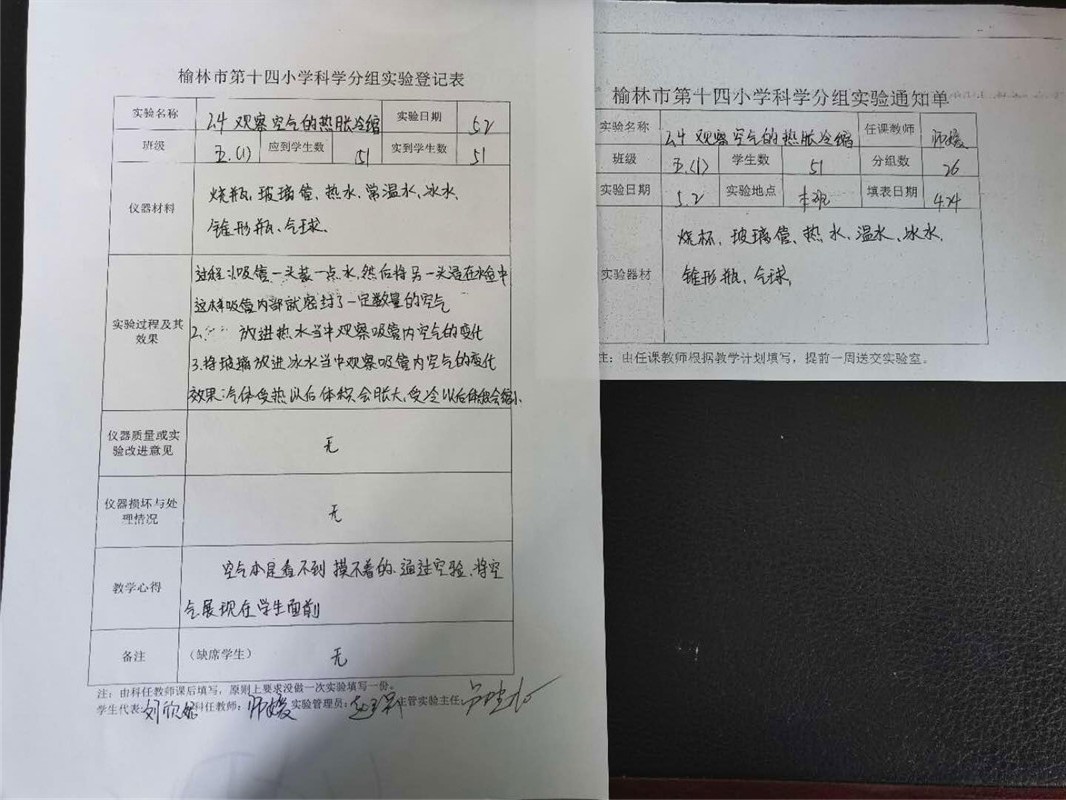 榆林市第十四小学科学分组实验登记表
实验名称 2.4 观察空气的热胀冷缩 实验日期 5.2
班级 五.(1) 应到学生数 51 实到学生数 51
仪器材料 烧瓶、玻璃管、热水、常温水、冰水、
锥形瓶、气球.
实验过程及其效果
过程:1.吸管一头装一点水,然后将另一头浸在水中
这样吸管内部就密封了一定数量的空气
2. 放进热水当中观察吸管内空气的变化
3.将玻璃放进冰水当中观察吸管内空气的变化
效果:气体受热以后体积会胀大,受冷以后体积会缩小.
仪器质量或实验改进意见 无
仪器损坏与处理情况 无
教学心得 空气本是看不到摸不着的.通过实验、将空
气展现在学生面前
备注 (缺席学生) 无
注:由科任教师课后填写,原则上要求没做一次实验填写一份。
学生代表: 刘欣 科任教师: 师媛 实验管理员: 主管实验主任:
榆林市第十四小学科学分组实验通知单
实验名称 2.4 观察空气的热胀冷缩 任课教师 师媛
班级 五.(1) 学生数 51 分组数 26
实验日期 5.2 实验地点 本班 填表日期 4.24
实验器材 烧杯、玻璃管、热水、温水、冰水、
锥形瓶、气球,
注:由任课教师根据教学计划填写,提前一周送交实验室。